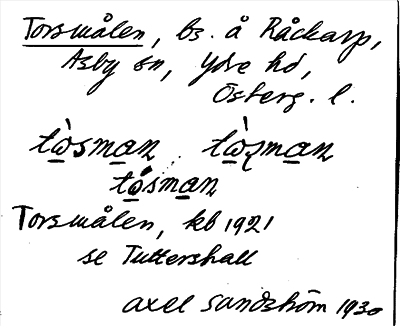 Torsmålen, bs. å Råckarp,
Asby sn, Ydre hd,
Österg. l.
tὼsman tὼʂman
tώsman
Torsmålen, kb 1921
se Tuttershall
axel sandström 1930